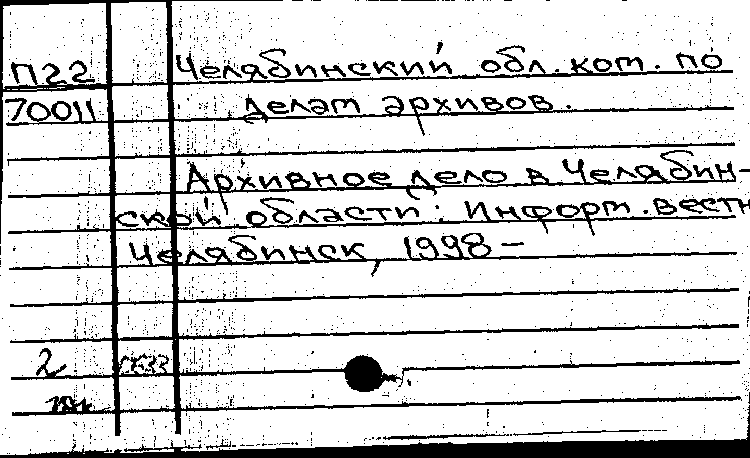 П22 Челябинский обл. ком. по
70011 делам архивов.
Архивное дело в Челябин-
ской области: Информ. вестн
Челябинск, 1998 –
2